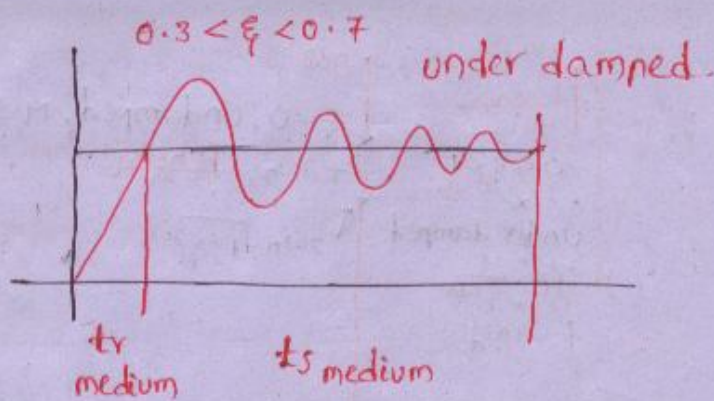 0.3 < ξ < 0.7
under damped.
tr
medium
ts medium